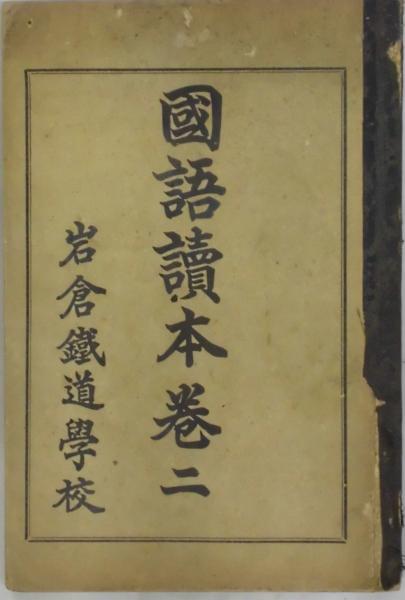 國語讀本卷二
岩倉鐵道學校